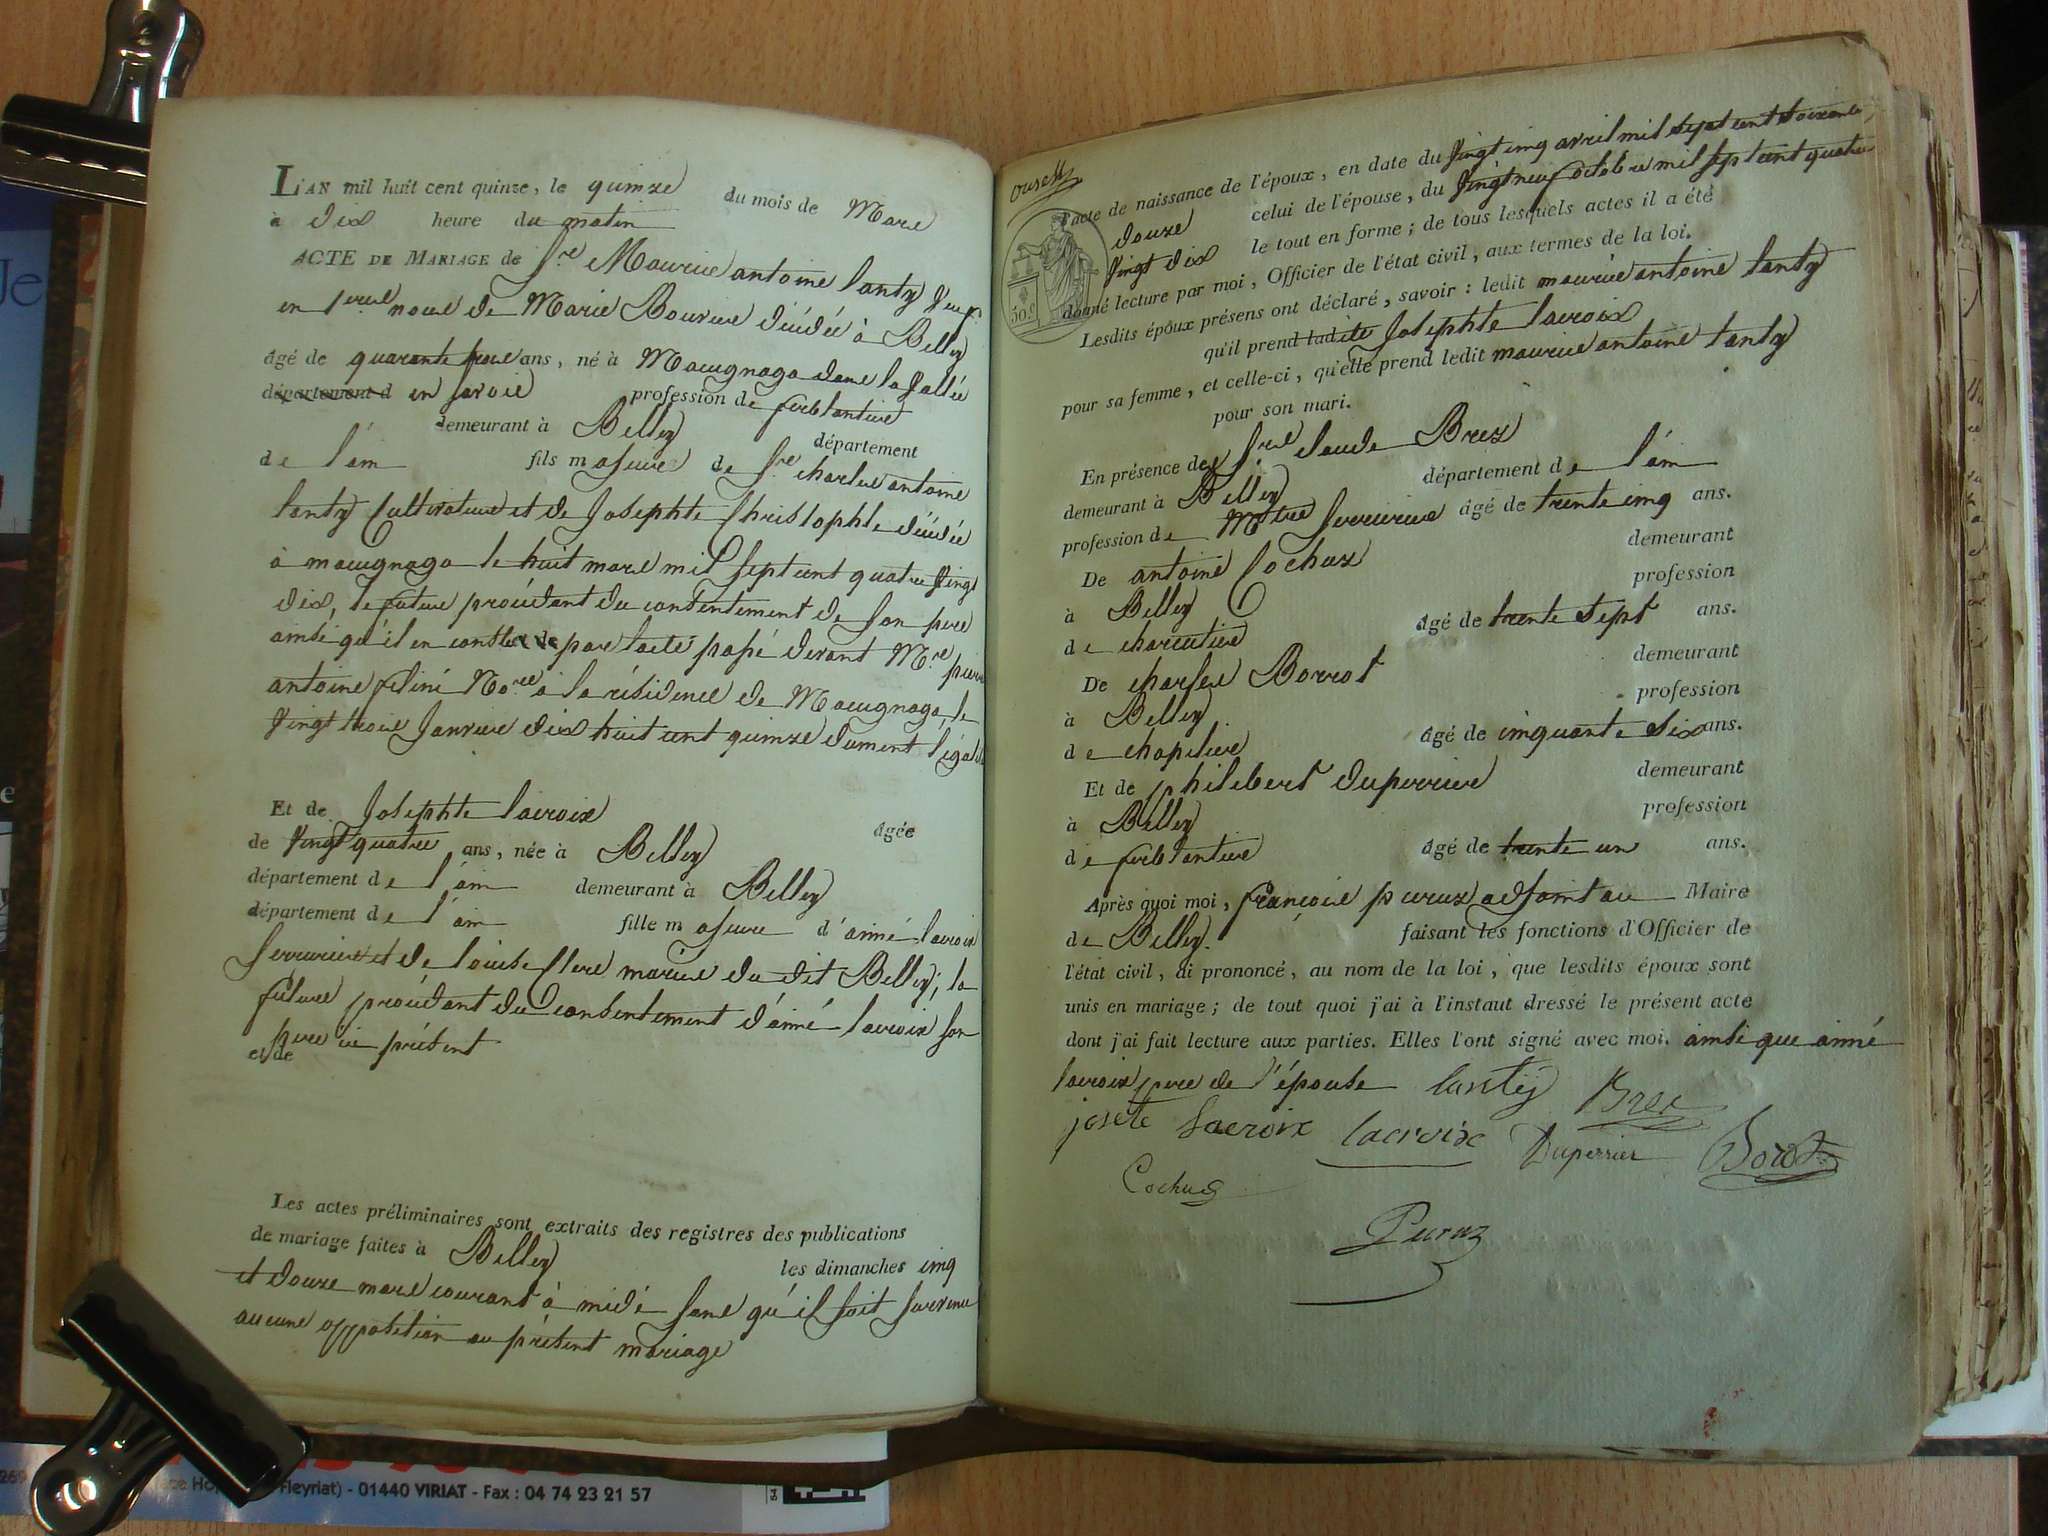 L'AN mil huit cent quinze, le quinze du mois de Mars
à dix heure du matin
ACTE DE MARIAGE de Sr. Maurice antoine lanty Veuf
en 1eres noces de Marie Bouvier décédée à Belley
âgé de quarante trois ans, né à Macugnaga dans la Vallée
département d en savoie profession de ferblantier
demeurant à Belley département
de l'ain fils majeur de Sr. charles antoine
lanty Cultivateur et de Josephte Christophle décédée
à macugnaga le huit mars mil sept cent quatre Vingt
dix, le futur procédant du consentement de son pere
ainsi qu'il en conste par l'acte passé devant Mre. pierre
antoine Nore. à la résidence de Macugnaga le
Vingt trois Janvier dix huit cent quinze dument légalisé
Et de Josephte lacroix âgée
de Vingt quatre ans, née à Belley
département de l'ain demeurant à Belley
département de l'ain fille majeure d'aimé lacroix
serrurier et de louise Clerc mariés du dit Belley; la
future procédant du consentement d'aimé lacroix son
pere ici présent
et de
Les actes préliminaires sont extraits des registres des publications
de mariage faites à Belley les dimanches cinq
et douze mars courant à midi sans qu'il soit survenu
aucune opposition au présent mariage
l'acte de naissance de l'époux, en date du Vingt cinq avril mil sept cent soixante
douze celui de l'épouse, du Vingt neuf octobre mil sept cent quatre
Vingt dix le tout en forme; de tous lesquels actes il a été
donné lecture par moi, Officier de l'état civil, aux termes de la loi.
50 c
Lesdits époux présens ont déclaré, savoir: ledit maurice antoine lanty
qu'il prend ladite Josephte lacroix
pour sa femme, et celle-ci, qu'elle prend ledit maurice antoine lanty
pour son mari.
En présence de Srs. claude Brex
demeurant à Belley département de l'ain
profession de Mtre serrurier âgé de trente cinq ans.
De antoine Cochux demeurant
à Belley profession
de charcutier âgé de trente sept ans.
De charles Borrot demeurant
à Belley profession
de chapelier âgé de cinquante six ans.
Et de philibert duperrier demeurant
à Belley profession
de ferblantier âgé de trente un ans.
Après quoi moi, françois puruz adjoint au Maire
de Belley. faisant les fonctions d'Officier de
l'état civil, ai prononcé, au nom de la loi, que lesdits époux sont
unis en mariage; de tout quoi j'ai à l'instaut dressé le présent acte
dont j'ai fait lecture aux parties. Elles l'ont signé avec moi. ainsi que aimé
lacroix pere de l'épouse lantÿ Brex
josete Lacroix lacroix Duperrier Borot
Cochux
Puruz
01440 VIRIAT - Fax : 04 74 23 21 57